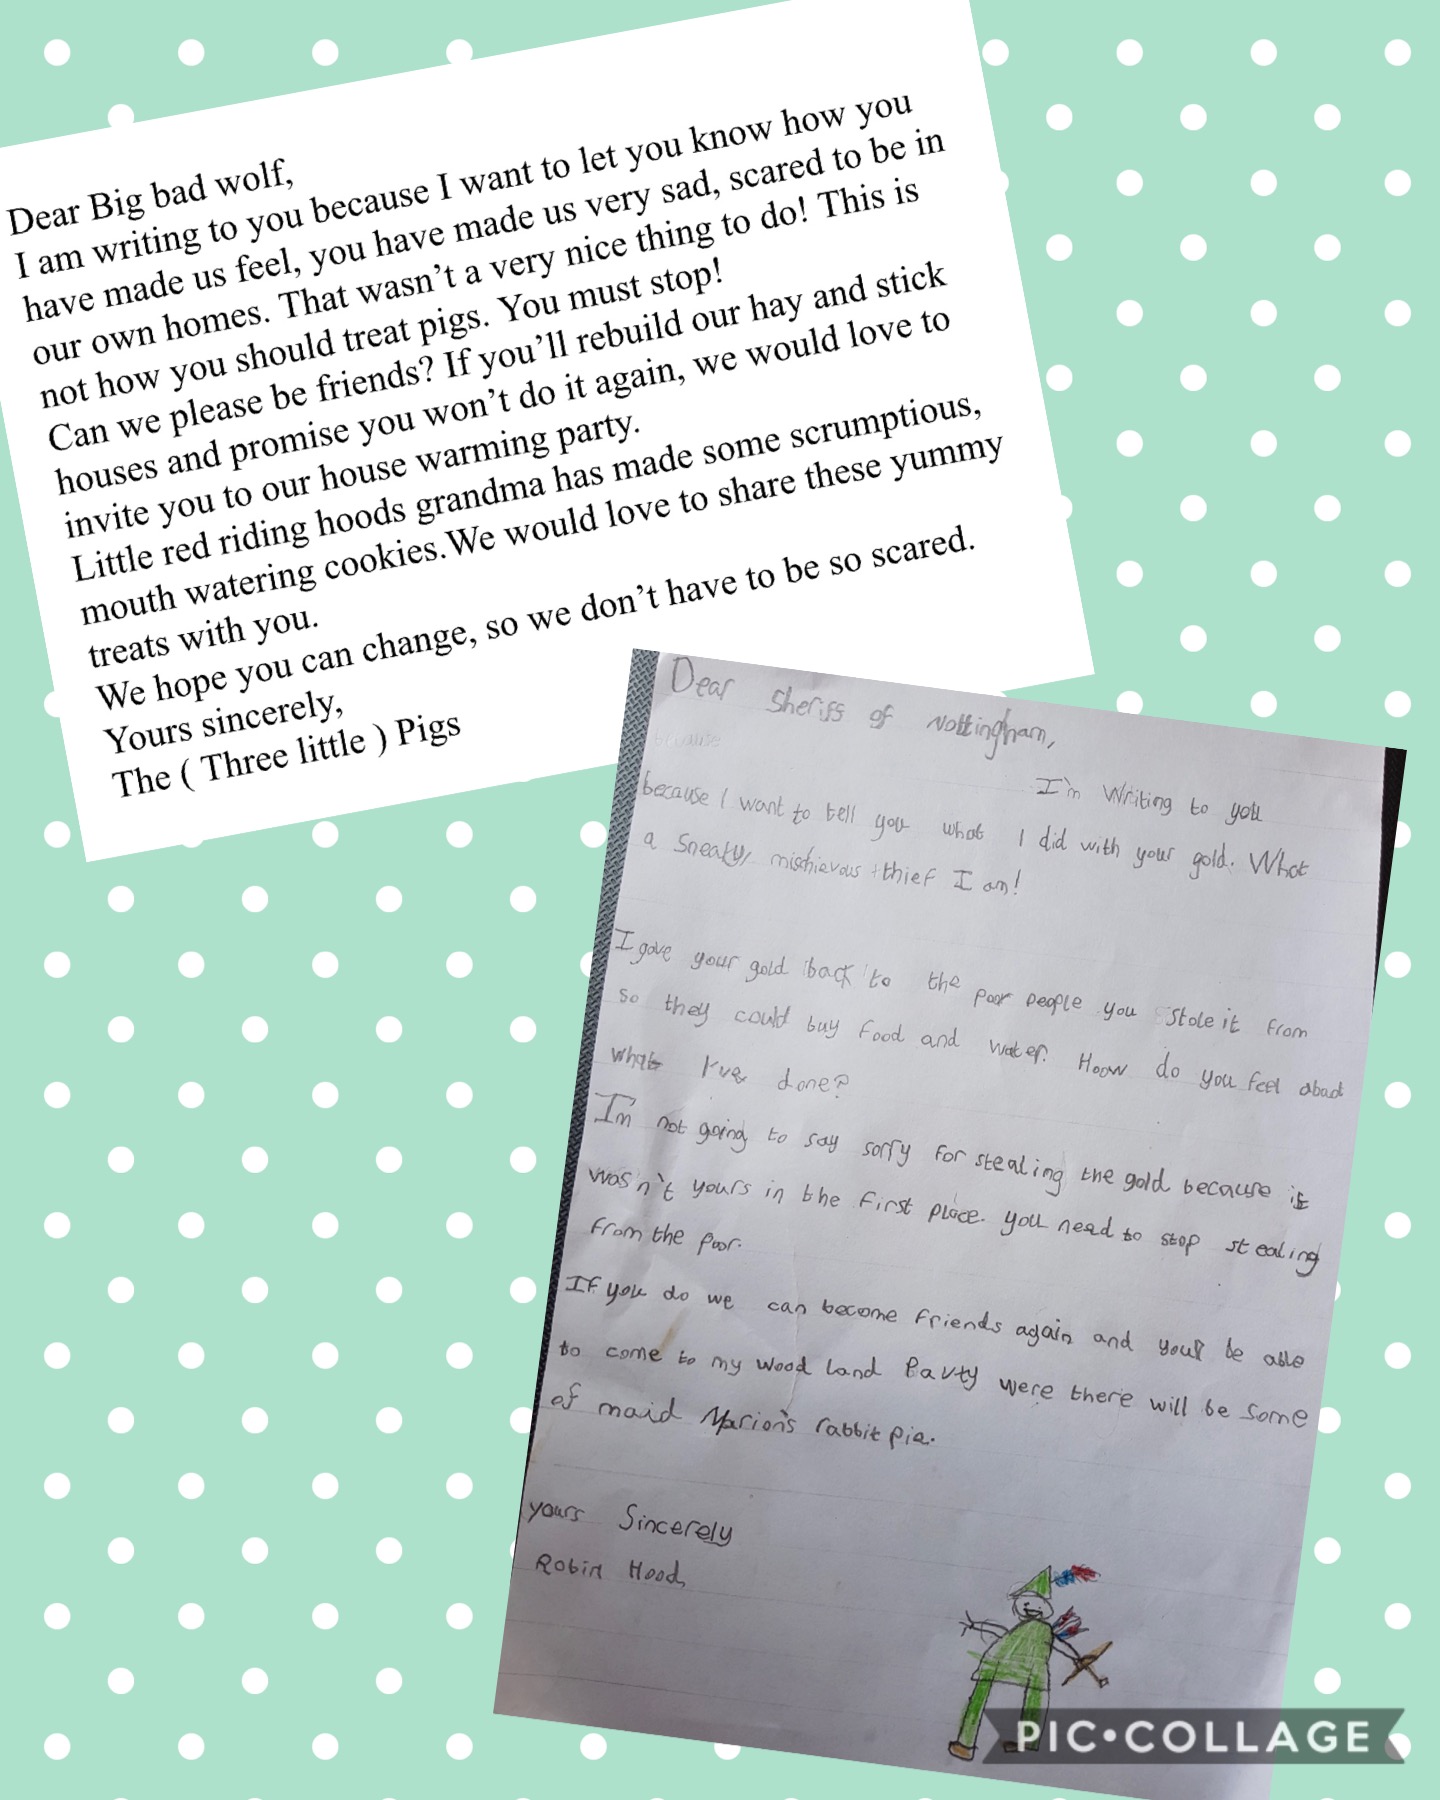 Dear Big bad wolf,
I am writing to you because I want to let you know how you
have made us feel, you have made us very sad, scared to be in
our own homes. That wasn't a very nice thing to do! This is
not how you should treat pigs. You must stop!
Can we please be friends? If you'll rebuild our hay and stick
houses and promise you won't do it again, we would love to
invite you to our house warming party.
Little red riding hoods grandma has made some scrumptious,
mouth watering cookies.We would love to share these yummy
treats with you.
We hope you can change, so we don't have to be so scared.
Yours sincerely,
The ( Three little ) Pigs
Dear Sheriff of Nottingham,
because
I'm Writing to you
because I want to tell you what I did with your gold. What
a Sneaky, mischievous thief I am!
I gave your gold back to the poor people you stole it from
so they could buy food and water. Hoow do you feel abad
what I've done?
I'm not going to say sorry for stealing the gold because it
wasn't yours in the first place. you need to stop stealing
from the poor.
If you do we can become friends again and you'll be able
to come to my wood land Party were there will be some
of maid Marion's rabbit pie.
yours Sincerely
Robin Hood
PIC•COLLAGE